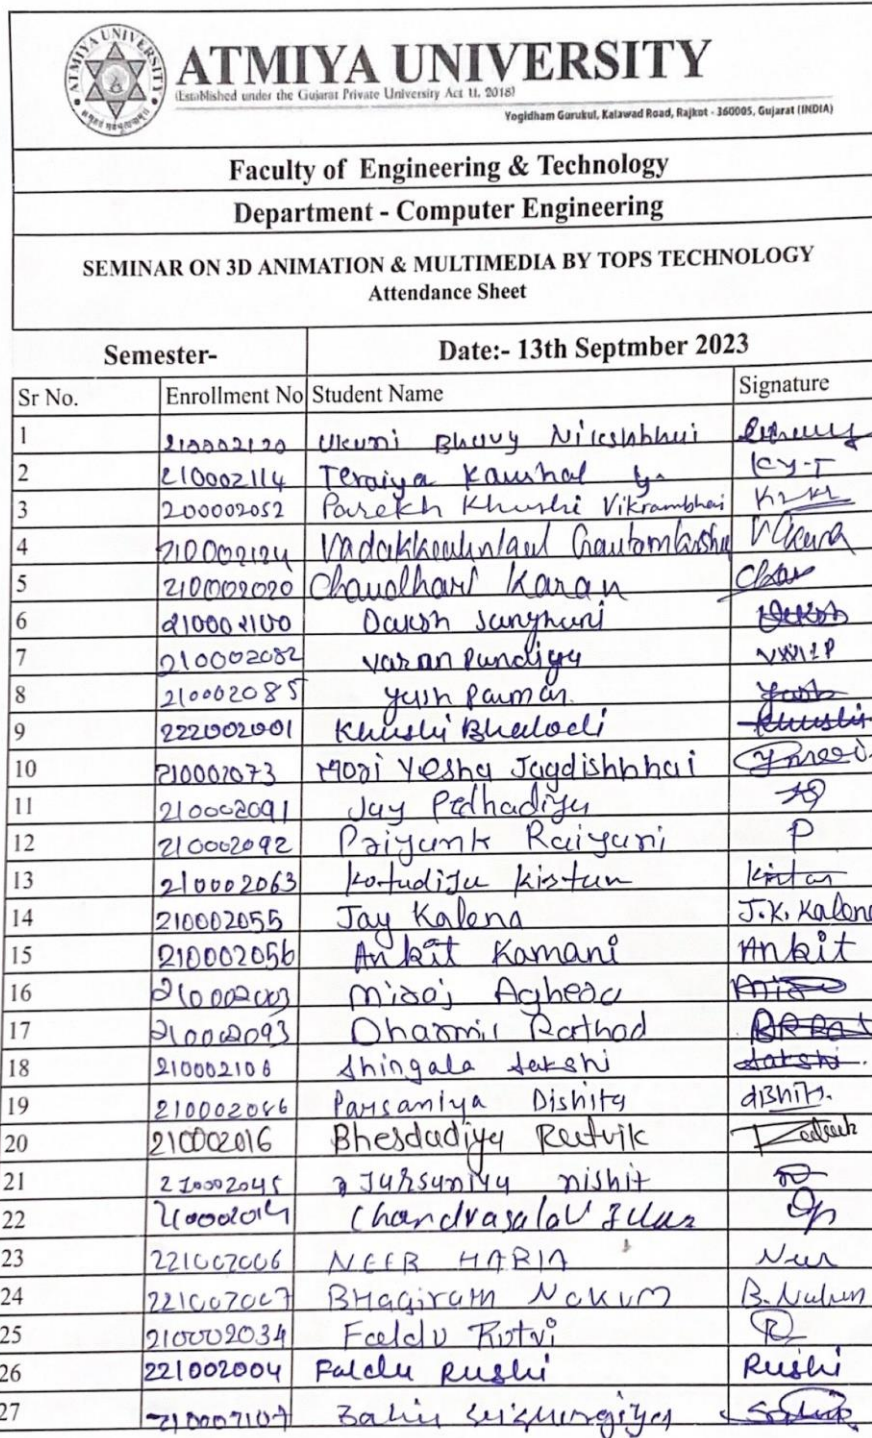 ATMIYA UNIVERSITY
ATMIYA UNIVERSITY
(Established under the Gujarat Private University Act 11, 2018)
Yogidham Gurukul, Kalawad Road, Rajkot - 360005, Gujarat (INDIA)
Faculty of Engineering & Technology
Department - Computer Engineering
SEMINAR ON 3D ANIMATION & MULTIMEDIA BY TOPS TECHNOLOGY
Attendance Sheet
Semester- Date:- 13th Septmber 2023
Sr No. Enrollment No Student Name Signature
1 210002120 Ukani Bhavy Nileshbhai
2 210002114 Teraiya Kaushal y. KY-T
3 200002052 Parekh Khushi Vikrambhai
4 210002124
5 210002020 Chaudhari Karan
6 210002100 Daksh Sanghani Daksh
7 210002082 Varan Pandiya
8 210002085 yash Parmar. Yash
9 222002001 Khushi Bhalodi Khushi
10 210002073 Mori Yesha Jagdishbhai
11 210002091 Jay Pedhadiya
12 210002092 Priyank Raiyani P
13 210002063 Kotadiya Kistan Kistan
14 210002055 Jay Kalena J.K. Kalena
15 210002056 Ankit Kamani Ankit
16 210002003 Miraj Aghera
17 210002093 Dharmil Rathod
18 210002106 Shingala Sakshi Sakshi.
19 210002086 Parsaniya Dishita dishita.
20 210002016 Bhesdadiya Rutvik
21 210002045 Jarsaniya nishit
22 210002019 Chandrasala
23 221002006 NEER HARIA Neer
24 221002007 BHagiram Nakum B. Nakum
25 210002034 Faldu Rutvi
26 221002004 Faldu Rushi Rushi
27 210002107